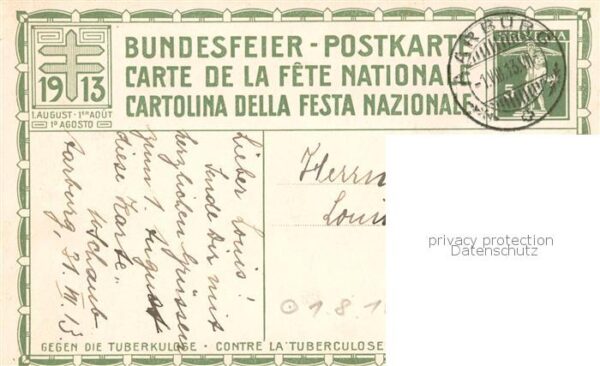 BUNDESFEIER - POSTKART
CARTE DE LA FÊTE NATIONAL
CARTOLINA DELLA FESTA NAZIONALE
1913
1. AUGUST - 1ER AOÛT
1º AGOSTO
AARBURG
HELVETIA
5
Lieber Louis!
Sende Dir mit
herzlichen Grüssen
zum 1. August
diese Karte.
Schaub
Aarburg, 31. VII. 13.
Herrn
Loui
privacy protection
Datenschutz
01.8.1
GEGEN DIE TUBERKULOSE · CONTRE LA TUBERCULOSE